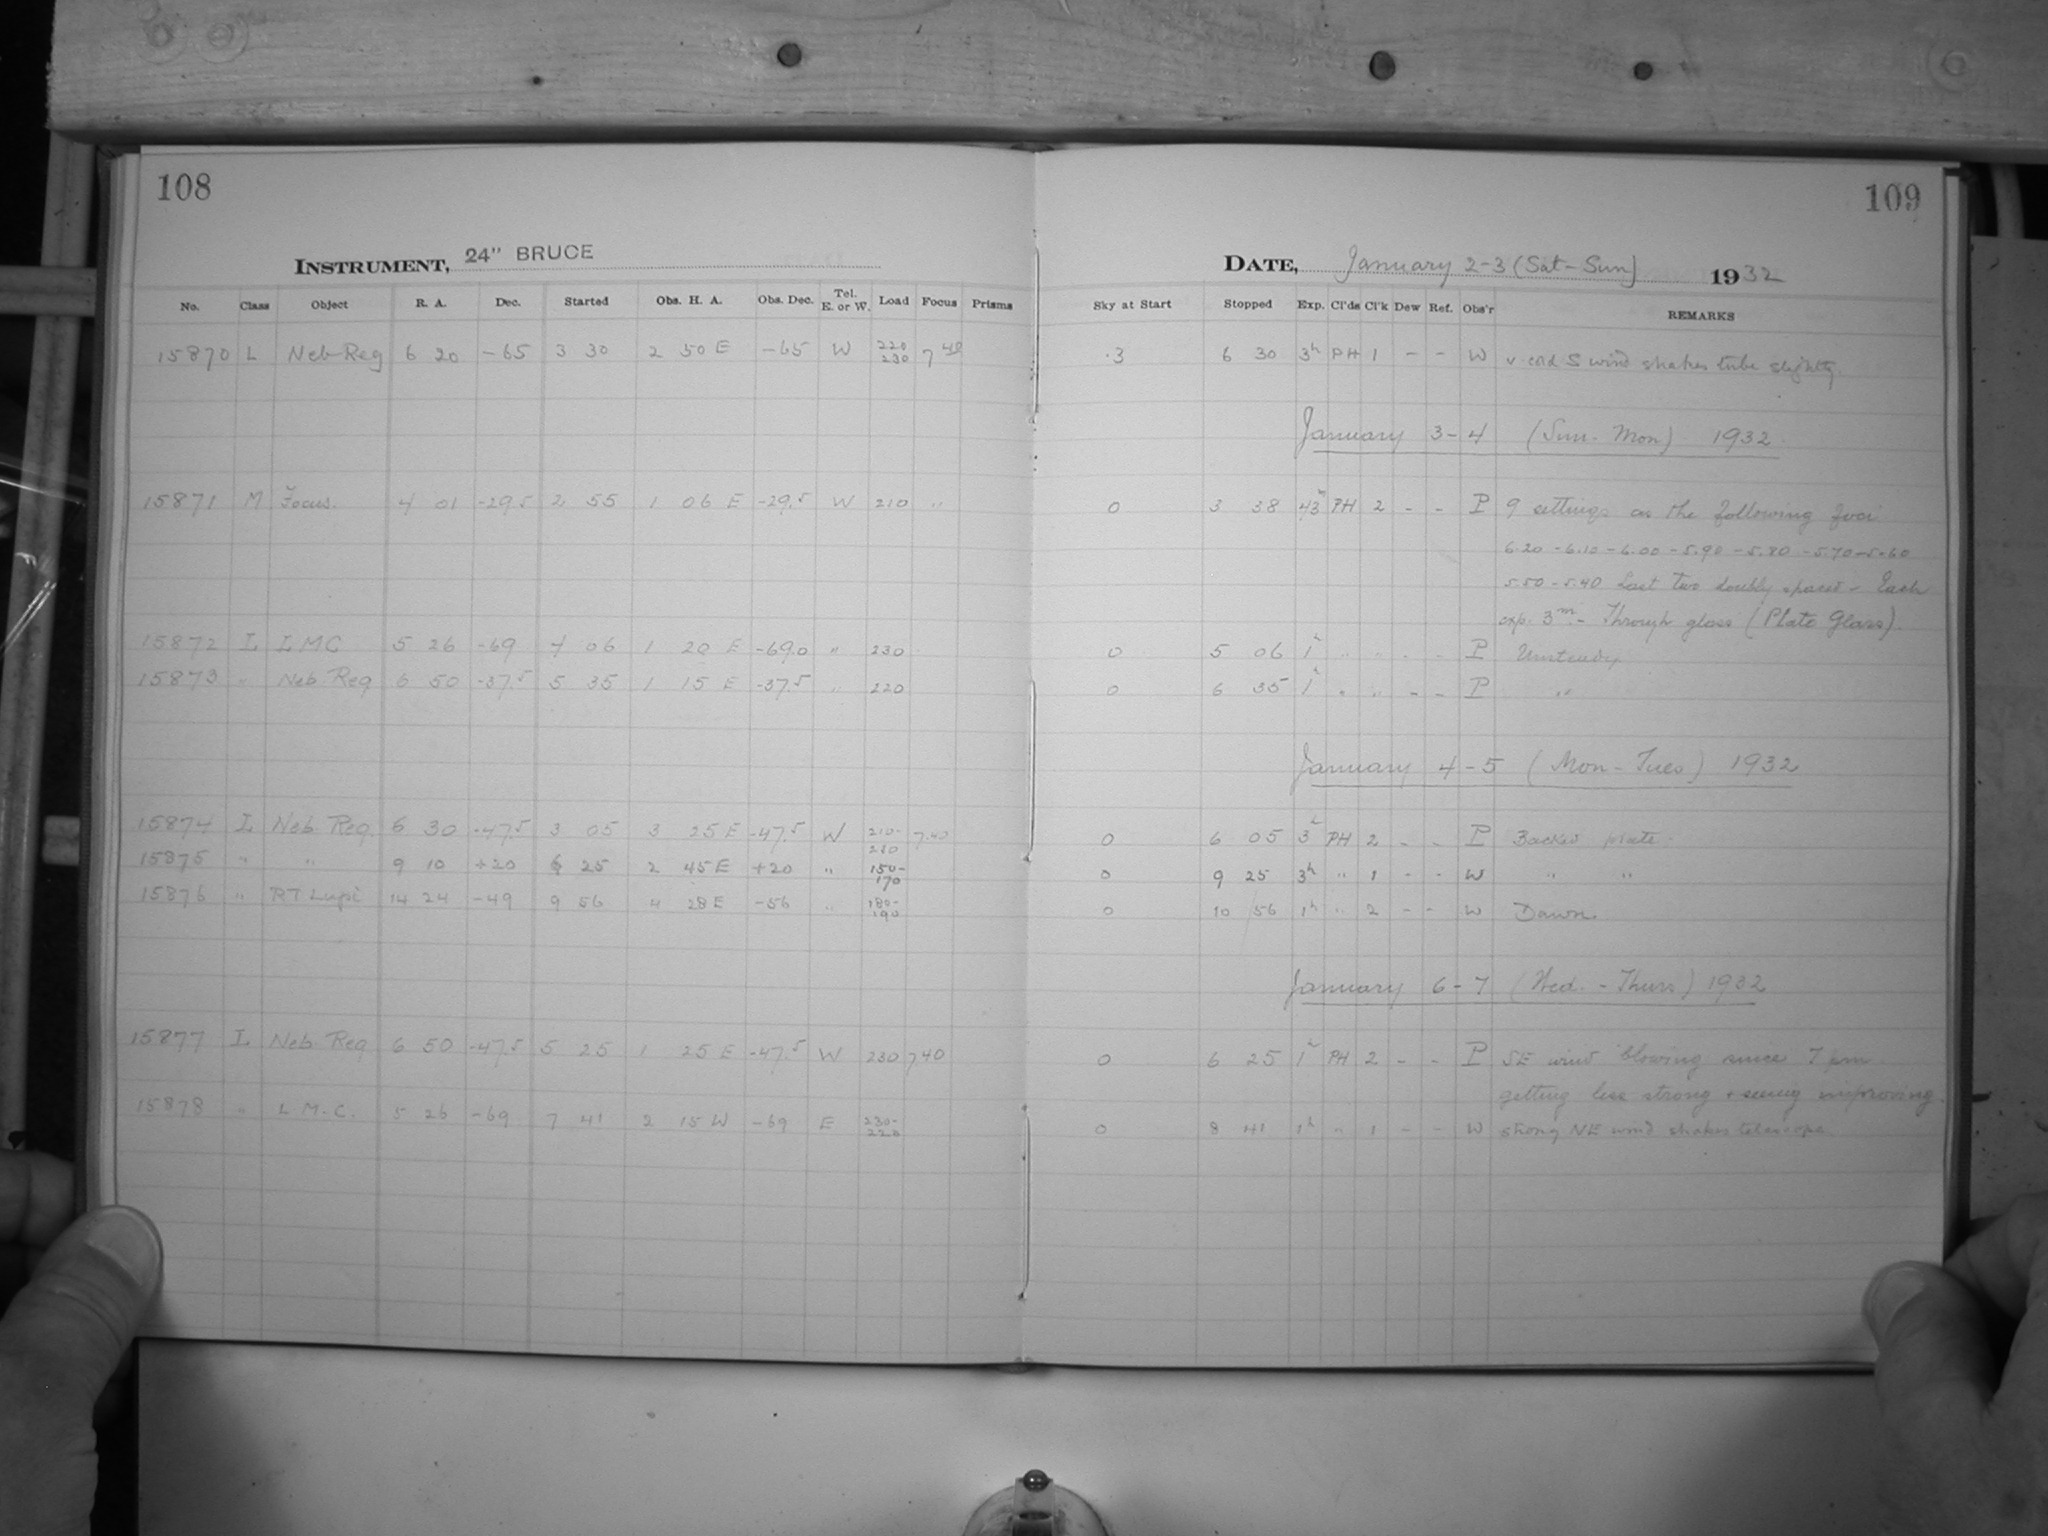 108
109
INSTRUMENT, 24" BRUCE
DATE, January 2-3 (Sat-Sun) 1932
No. Class Object R. A. Dec. Started Obs. H. A. Obs. Dec. Tel. E. or W. Load Focus Prisms Sky at Start Stopped Exp. Cl'ds Cl'k Dew Ref. Obs'r REMARKS
15870 L Neb Reg 6 20 -65 3 30 2 50 E -65 W 220 230 7 40 .3 6 30 3h PH 1 - - W v. cold S wind shakes tube slightly
January 3-4 (Sun. Mon) 1932
15871 M Focus. 4 01 -29.5 2 55 1 06 E -29.5 W 210 " 0 3 38 43m PH 2 - - P 9 settings as the following foci
6.20 - 6.10 - 6.00 - 5.90 - 5.80 - 5.70 - 5.60
5.50 - 5.40 Last two doubly spaced - Each
exp. 3m - Through glass (Plate Glass).
15872 L LMC 5 26 -69 4 06 1 20 E -69.0 " 230 0 5 06 1h " " - - P Unsteady
15873 " Neb. Reg 6 50 -37.5 5 35 1 15 E -37.5 " 220 0 6 35 1h " " - - P "
January 4-5 (Mon-Tues) 1932
15874 L Neb. Reg. 6 30 -47.5 3 05 3 25 E -47.5 W 210- 230 7.40 0 6 05 3h PH 2 - - P Backed plate.
15875 " " 9 10 +20 6 25 2 45 E +20 " 150- 170 0 9 25 3h " 1 - - W " "
15876 " RT Lupi 14 24 -49 9 56 4 28 E -56 " 180- 190 0 10 56 1h " 2 - - W Dawn.
January 6-7 (Wed. - Thurs) 1932
15877 L Neb Reg 6 50 -47.5 5 25 1 25 E -47.5 W 230 7.40 0 6 25 1h PH 2 - - P SE wind blowing since 7 pm
getting less strong + seeing improving.
15878 " L.M.C. 5 26 -69 7 41 2 15 W -69 E 230- 220 0 8 41 1h " 1 - - W strong NE wind shakes telescope